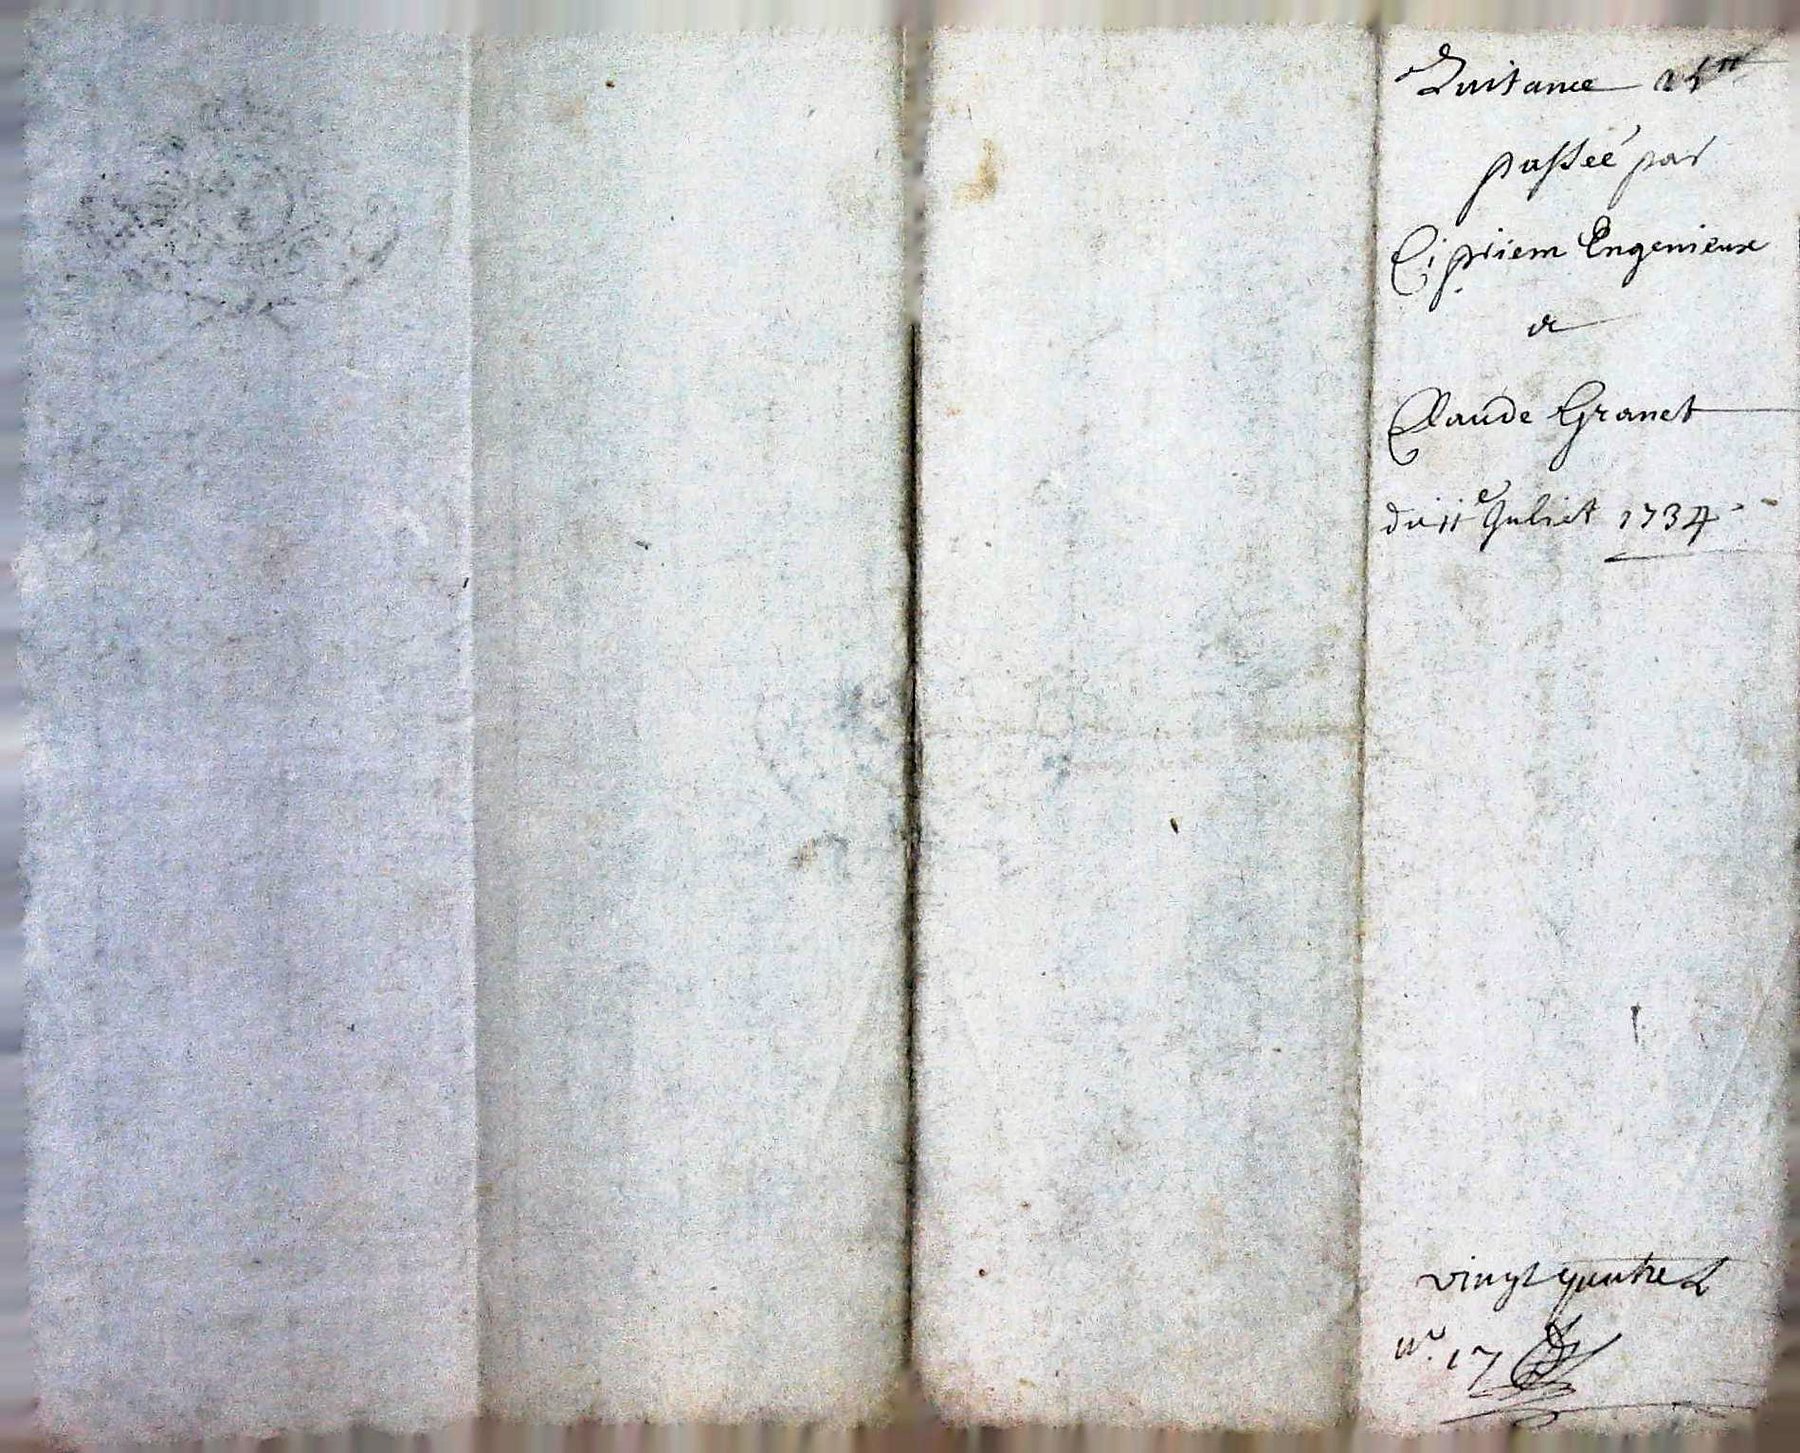 Quitance 24ᵗᵗ
passée par
Cipriem Engenieux
a
Claude Granet
du 11ᵉ Juliet 1734
vingt quatre L
nᵒ. 17